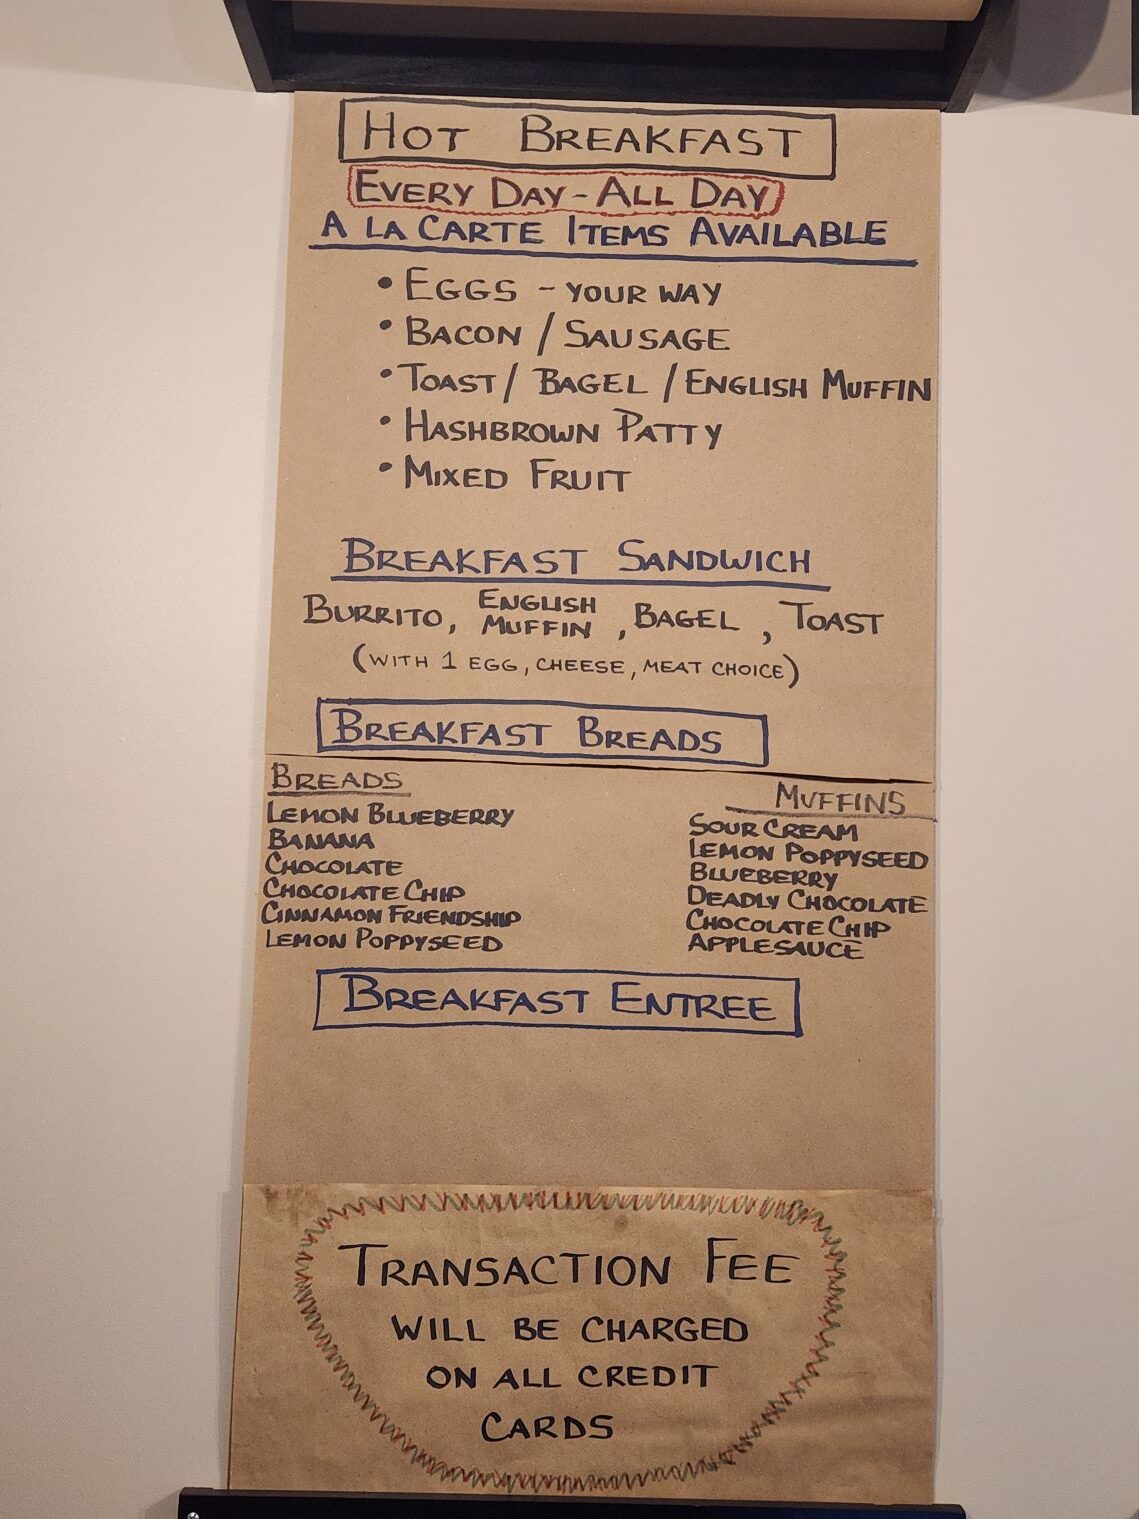 HOT BREAKFAST
EVERY DAY - ALL DAY
A LA CARTE ITEMS AVAILABLE
• EGGS - YOUR WAY
• BACON / SAUSAGE
• TOAST / BAGEL / ENGLISH MUFFIN
• HASHBROWN PATTY
• MIXED FRUIT
BREAKFAST SANDWICH
BURRITO, ENGLISH MUFFIN, BAGEL, TOAST
(WITH 1 EGG, CHEESE, MEAT CHOICE)
BREAKFAST BREADS
BREADS
LEMON BLUEBERRY
BANANA
CHOCOLATE
CHOCOLATE CHIP
CINNAMON FRIENDSHIP
LEMON POPPYSEED
MUFFINS
SOUR CREAM
LEMON POPPYSEED
BLUEBERRY
DEADLY CHOCOLATE
CHOCOLATE CHIP
APPLESAUCE
BREAKFAST ENTREE
TRANSACTION FEE
WILL BE CHARGED
ON ALL CREDIT
CARDS